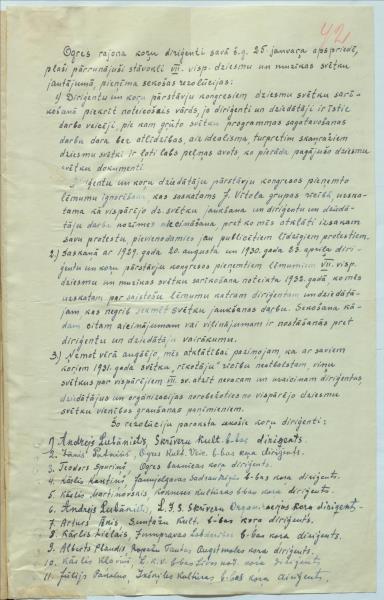 42
Ogres rajona koru diriģenti savā š.g. 25. janvara apspriedē,
plaši pārrunājuši stāvokli VII. visp. dziesmu un muzikas svētku
jautājumā, pieņēma sekošas rezolūcijas:
1) Diriģentu un koru pārstāvju kongresiem dziesmu svētku sarī-
košanā piekrīt noteicošais vārds, jo diriģenti un dziedātāji ir īstie
darba veicēji, pie kam grūto svētku programmas sagatavošanas
darbu dara bez atlīdzības, aiz ideālisma, turpretim skaņražiem
dziesmu svētki ir ļoti labs peļņas avots, ko pierāda pagājušo dziesmu
svētku dokumenti.
Diriģentu un koru dziedātāju pārstāvju kongresos pieņemto
lēmumu ignorēšana, kas saskatams J. Vītola grupas rīcībā, uzska-
tama kā vispārējo dz. svētku jaukšana un diriģentu un dziedā-
tāju darba nozīmes pret ko mēs atklāti izsakam
savu protestu, pievienodamies jau publicētiem līdzīgiem protestiem.
2) Saskaņā ar 1929. gada 20. augusta un 1930. gada 23. aprīļa diri-
ģentu un koru pārstāvju kongresos pieņemtiem lēmumiem VII. visp.
dziesmu un muzikas svētku sarīkošana noteikta 1932. gadā, ko mēs
uzskatam par saistošu lēmumu katram diriģentam un dziedātā-
jam, kas negrib svētku jaukšanas darbu. Sekošana kā-
dam citam aicinājumam vai viļinājumam ir nostāšanās pret
diriģentu un dziedātāju vairākumu.
3) Ņemot vērā augšējo, mēs atklātībai paziņojam, ka ar saviem
koriem 1931. gada svētku "rīkotāju" rīcību neatbalstam, viņu
svētkus par vispārējiem VII. sv. atzīt nevaram un aicinam diriģentus,
dziedātājus un organizācijas norobežoties no vispārējo dziesmu
svētku vienības graušanas paņēmieniem.
Šo rezolūciju paraksta sekošie koru diriģenti:
1. Andrejs Lubānietis, Skrīveru Kult. b-bas diriģents.
2. Ogres Kult. Veic. b-bas kora diriģents.
3. Teodors Ogres baznīcas kora diriģents.
4. Kārlis b-bas kora diriģents.
5. Kārlis Martinovskis, Kokneses kulturas b-bas kora diriģents.
6. Andrejs Lubānietis, L.J.S. Skrīveru Organizacijas kora diriģents.
7. Arturs Ānis, Suntažu Kult. b-bas kora diriģents.
8. Kārlis Lielais, Jumpravas Labdarības b-bas kora diriģents.
9. Alberts Plaudis, Ropažu Tautas Augstskolas kora diriģents.
10. Kārlis kora diriģents.
11. Jūlijs Ikšķiles Kulturas b-bas kora diriģents.